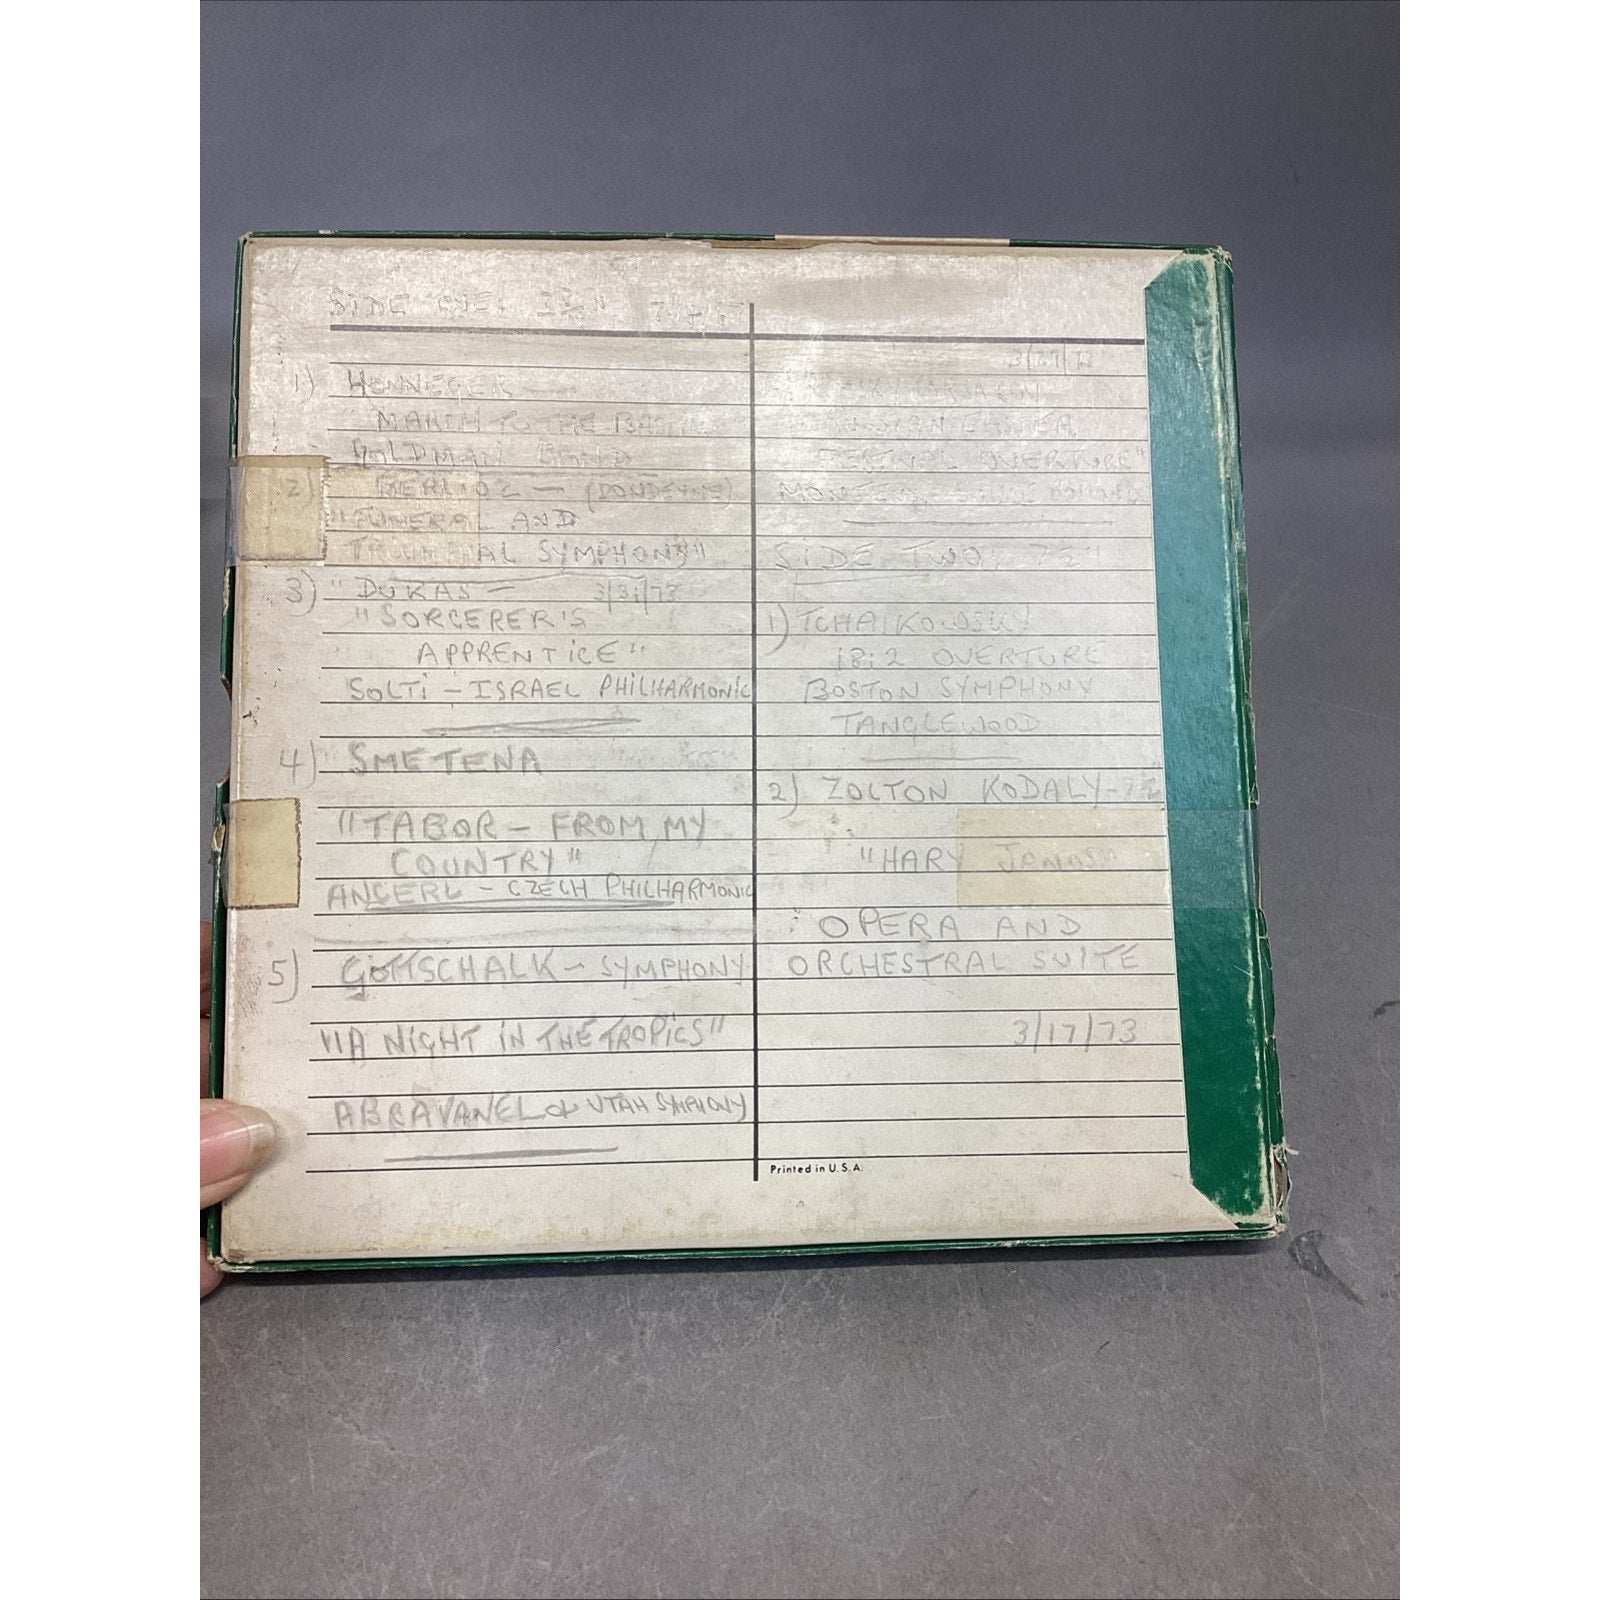 SIDE ONE: 3¾" 7½
1) HONNEGER —
MARCH TO THE BASTILLE
GOLDMAN BAND
2) BERLIOZ — (DONDEYNE)
"FUNERAL AND
TRIUMPHAL SYMPHONY"
3) "DUKAS — 3/31/73
"SORCERER'S
APPRENTICE"
SOLTI — ISRAEL PHILHARMONIC
4) SMETENA
"TABOR — FROM MY
COUNTRY"
ANCERL — CZECH PHILHARMONIC
5) GOTTSCHALK — SYMPHONY
"A NIGHT IN THE TROPICS"
ABRAVANEL & UTAH SYMPHONY
RUSSIAN EASTER
FESTIVAL OVERTURE"
SIDE TWO: 7½"
1) TCHAIKOWSKY
1812 OVERTURE
BOSTON SYMPHONY
TANGLEWOOD
2) ZOLTON KODALY - 7½"
"HARY JANOS"
OPERA AND
ORCHESTRAL SUITE
3/17/73
Printed in U.S.A.